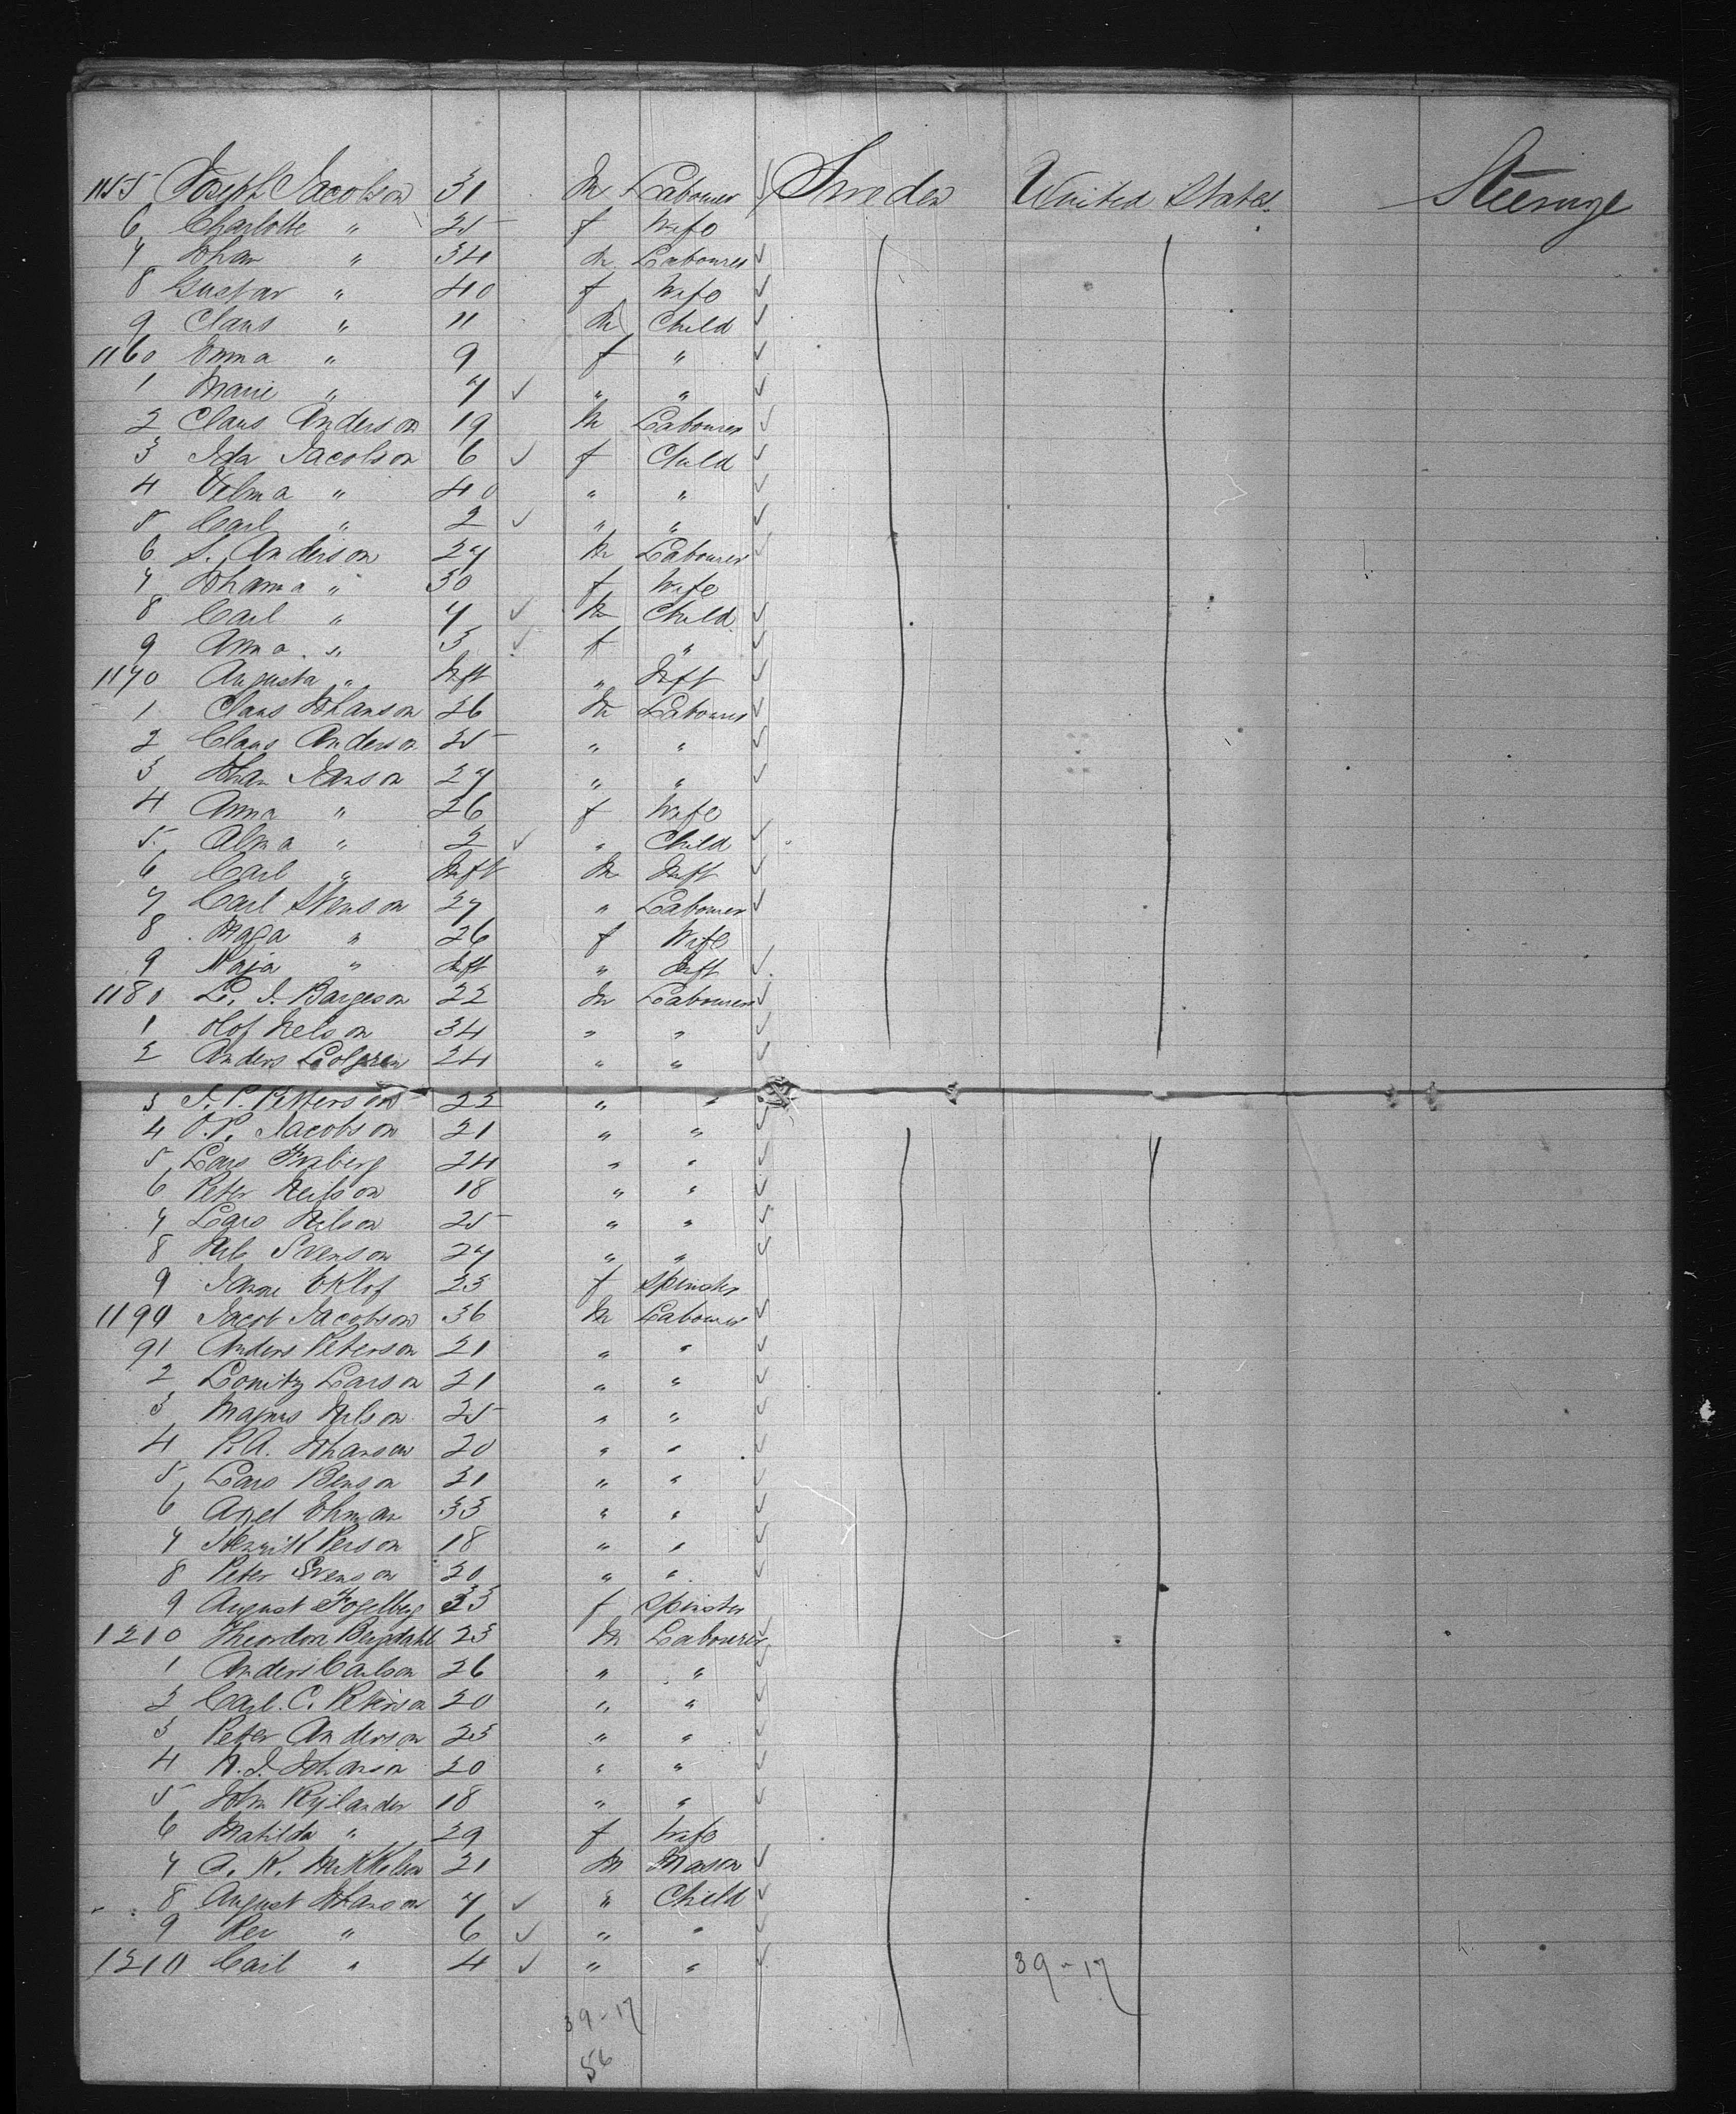 1155 Joseph Jacobson 31 M Labourer Sweden United States Steerage
6 Charlotte " 25 f Wife
7 Johan " 34 M Labourer
8 Gustav " 40 f Wife
9 Claus " 11 M Child
1160 Emma " 9 f "
1 Marie " 7 " "
2 Claus Anderson 19 M Labourer
3 Ida Jacobson 6 f Child
4 Velma " 40 " "
5 Carl " 2 " "
6 S. Anderson 27 M Labourer
7 Johanna " 30 f Wife
8 Carl " 7 M Child
9 Anna " 3 f "
1170 Augusta " Inft " Inft
1 Claus Johanson 26 M Labourer
2 Claus Anderson 25 " "
3 Johan Hanson 27 " "
4 Anna " 26 f Wife
5 Alma " 2 " Child
6 Carl " Inft M Inft
7 Carl Svenson 27 " Labourer
8 Maga " 26 f Wife
9 Maja " Inft " Inft
1180 L. J. Bargeson 22 M Labourer
1 Olof Nelson 34 " "
2 Anders 24 " "
3 J. P. Petterson 22 " "
4 O. P. Jacobson 21 " "
5 Lars 24 " "
6 Peter Neilson 18 " "
7 Lars Nilson 25 " "
8 Nils Svenson 27 " "
9 Eklof 23 f Spinster
1190 Jacob Jacobson 36 M Labourer
91 Anders Peterson 21 " "
2 Larson 21 " "
3 Magnus Nilson 25 " "
4 P. A. Johanson 20 " "
5 Lars Benson 21 " "
6 Axel Ohman 33 " "
7 Henrik Person 18 " "
8 Peter Svenson 20 " "
9 August Fogelberg 23 f Spinster
1210 Theodore Bergdahl 23 M Labourer
1 Anders Carlson 26 " "
2 Carl. C. Peterson 20 " "
3 Peter Anderson 23 " "
4 N. J. Johanson 20 " "
5 John Rylander 18 " "
6 Matilda " 29 f Wife
7 A. K. Mikkelson 21 M Mason
8 August Johanson 7 " Child
9 Per " 6 " "
1210 Carl " 4 " " 39-17
39-17
56